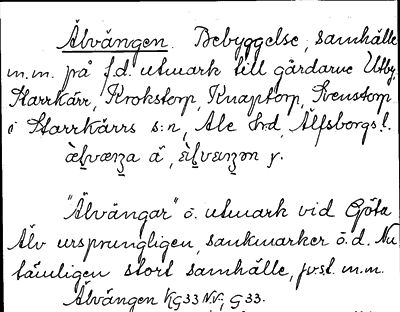 Älvängen. Bebyggelse, samhälle
m.m. på f.d. utmark till gårdarne Utby,
Starrkärr, Krokstorp, Knaptorp, Svenstorp
i Starrkärrs s:n, Ale hrd, Älfsborgs l.
"Älvängar" o. utmark vid Göta
Älv ursprungligen, sankmarker o.d. Nu
tämligen stort samhälle, jvst. m.m.
Älvängen KG33 NV, G33.